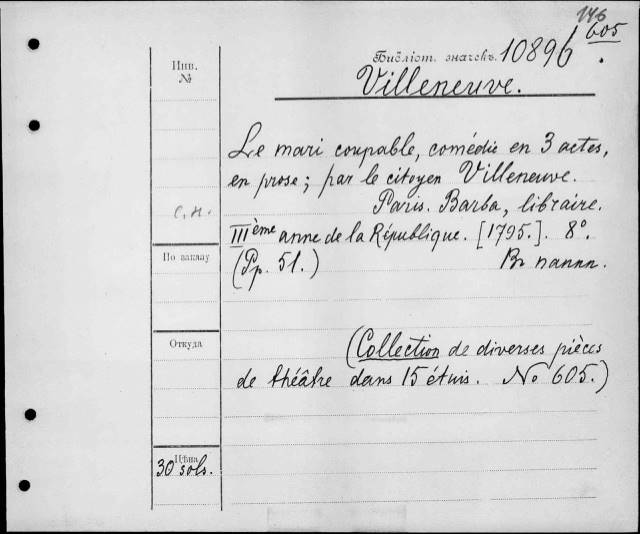 146
605
Инв.
№
Библіот. значекъ. 10896
Villeneuve.
Le mari coupable, comédie en 3 actes,
en prose; par le citoyen Villeneuve.
Paris. Barba, libraire.
с.н.
IIIème anne de la République. [1795.]. 8°.
По заказу
(Pp. 51.)
Въ паппк.
Откуда
(Collection de diverses pièces
de théâtre dans 15 étuis. No 605.)
Цѣна
30 sols.